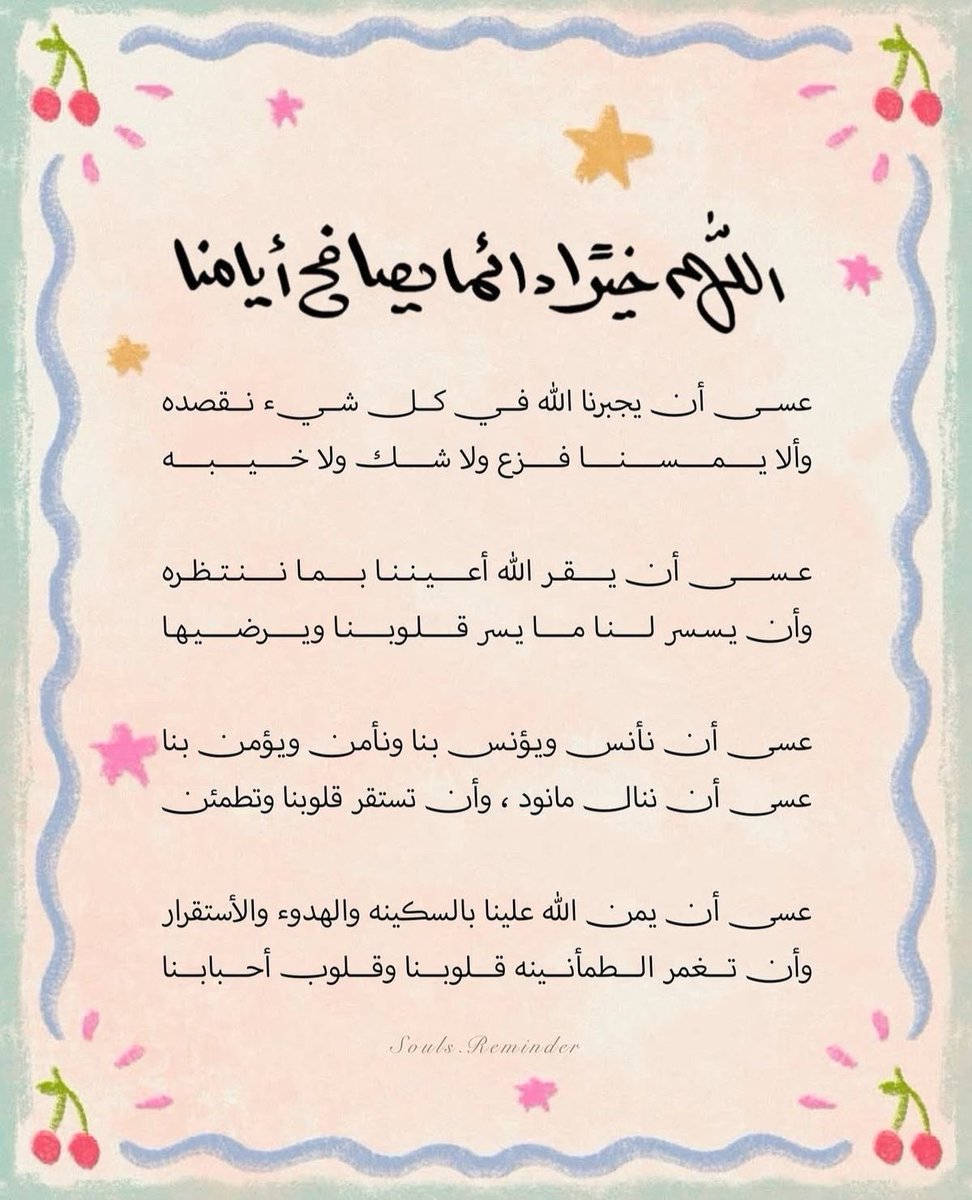 اللّٰهم خيرًا دائما يصافح أيامنا
عسى أن يجبرنا الله في كل شيء نقصده
وألا يمسنا فزع ولا شك ولا خيبه
عسى أن يقر الله أعيننا بما ننتظره
وأن يسسر لنا ما يسر قلوبنا ويرضيها
عسى أن نأنس ويؤنس بنا ونأمن ويؤمن بنا
عسى أن ننال مانود ، وأن تستقر قلوبنا وتطمئن
عسى أن يمن الله علينا بالسكينه والهدوء والأستقرار
وأن تغمر الطمأنينه قلوبنا وقلوب أحبابنا
Souls.Reminder